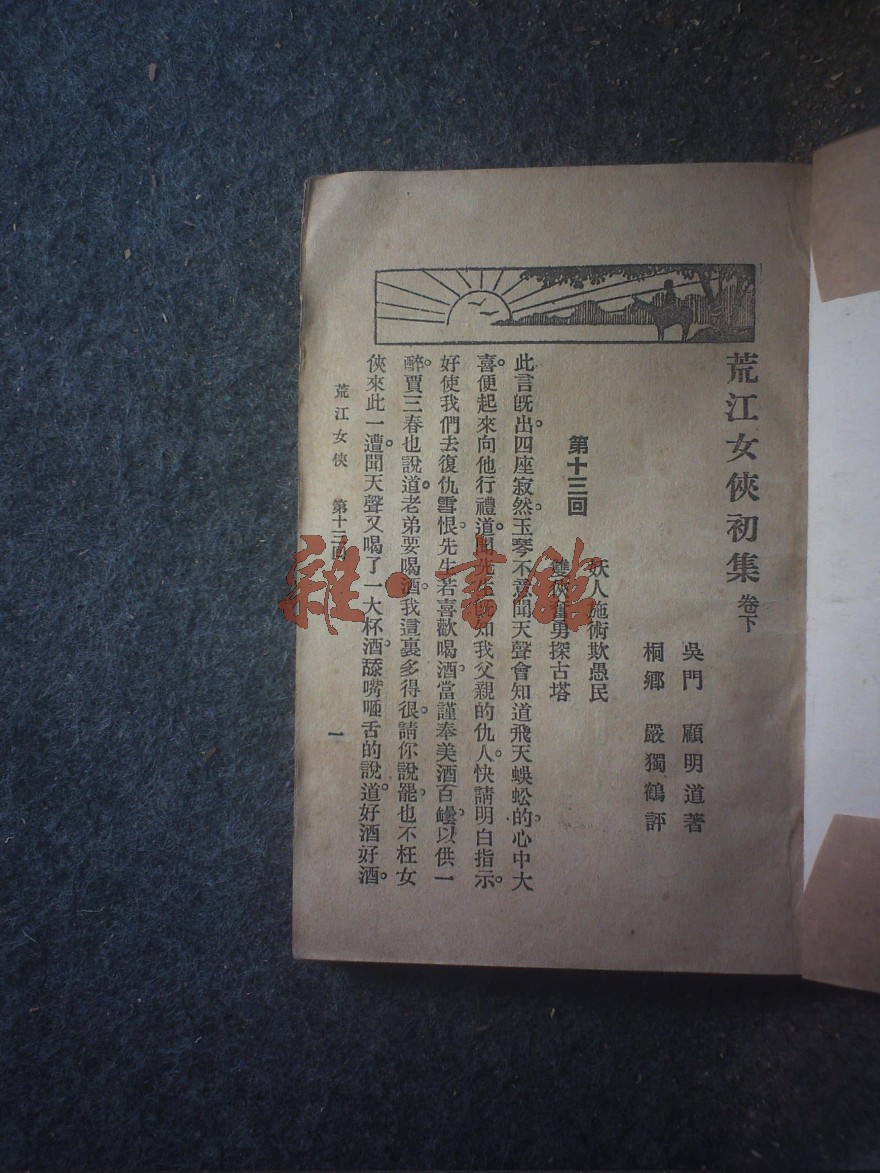 荒江女俠初集 卷下
吳門 顧明道著
桐鄉 嚴獨鶴評
第十三回
妖人施術欺愚民
雙俠奮勇探古塔
此言旣出。四座寂然。玉琴不意聞天聲會知道飛天蜈蚣的。心中大
喜。便起來向他行禮道。聞先生旣知我父親的仇人。快請明白指示。
好使我們去復仇雪恨。先生若喜歡喝酒。當謹奉美酒百罎。以供一
醉。賈三春也說道。老弟要喝酒。我這裏多得很。請你說罷。也不枉女
俠來此一遭。聞天聲又喝了一大杯酒。舔嘴咂舌的說道。好酒好酒。
荒江女俠 第十三回 一
雜·書館